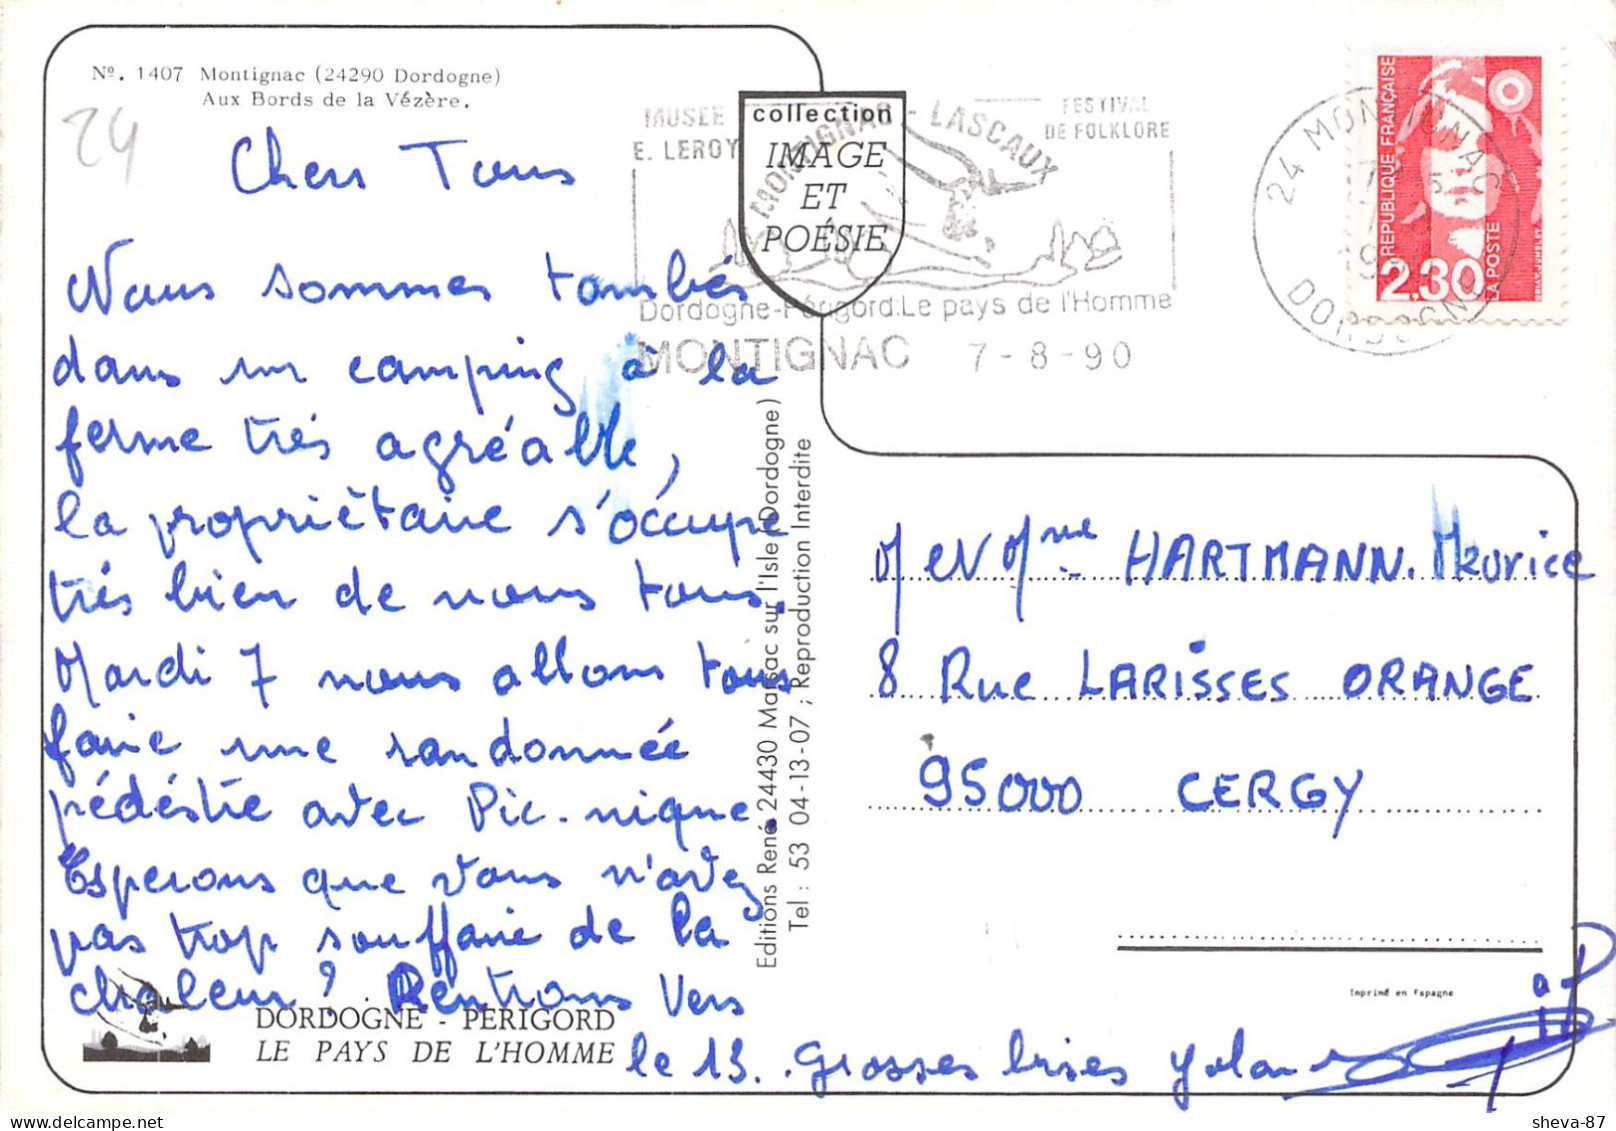 Nº. 1407 Montignac (24290 Dordogne)
Aux Bords de la Vézère.
24
Chers Tous
Nous sommes tombés
dans un camping à la
ferme très agréable,
la propriètaire s'occupe
très bien de nous tous.
Mardi 7 nous allons tous
faire une randonnée
pédéstre avec Pic-nique
Esperons que vous n'avez
pas trop souffaire de la
chaleur? Rentrons vers
le 13. grosses bises
DORDOGNE - PERIGORD
LE PAYS DE L'HOMME
collection
IMAGE
ET
POÉSIE
MUSEE
E. LEROY
MONTIGNAC - LASCAUX
FESTIVAL
DE FOLKLORE
Dordogne-Périgord:Le pays de l'Homme
MONTIGNAC 7-8-90
24 MONTIGNAC
DORDOGNE
REPUBLIQUE FRANÇAISE
2,30
LA POSTE
Editions René 24430 Marsac sur l'Isle (Dordogne)
Tel : 53 04-13-07 ; Reproduction Interdite
M et Mme HARTMANN. Maurice
8 Rue LARISSES ORANGE
95000 CERGY
Imprimé en Espagne
sheva-87